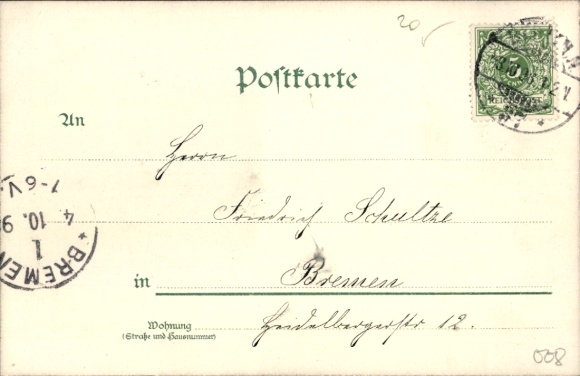 20
5
REICHSPOST
Postkarte
An
Herrn
Friedrich Schultze
in Bremen
Wohnung
(Straße und Hausnummer)
Heidelbergerstr 12.
*BREMEN
1
4 10. 9
7-6V.
008